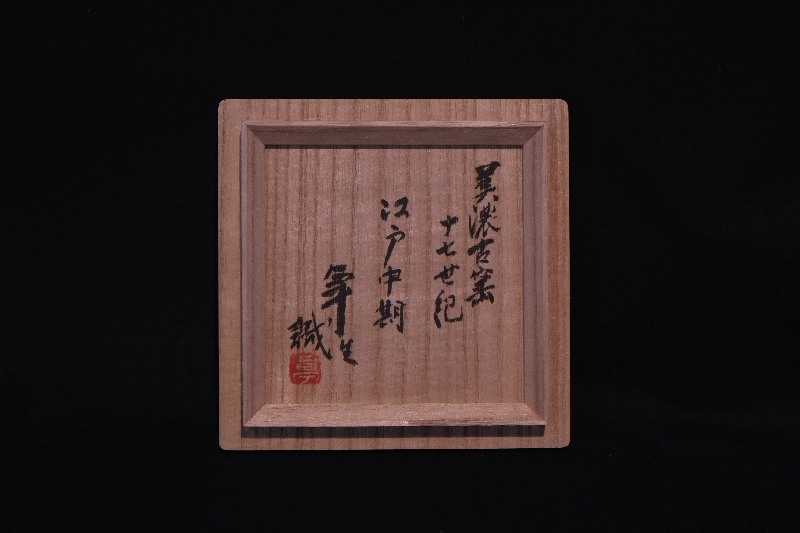 美濃古窯
十七世紀
江戸中期
識